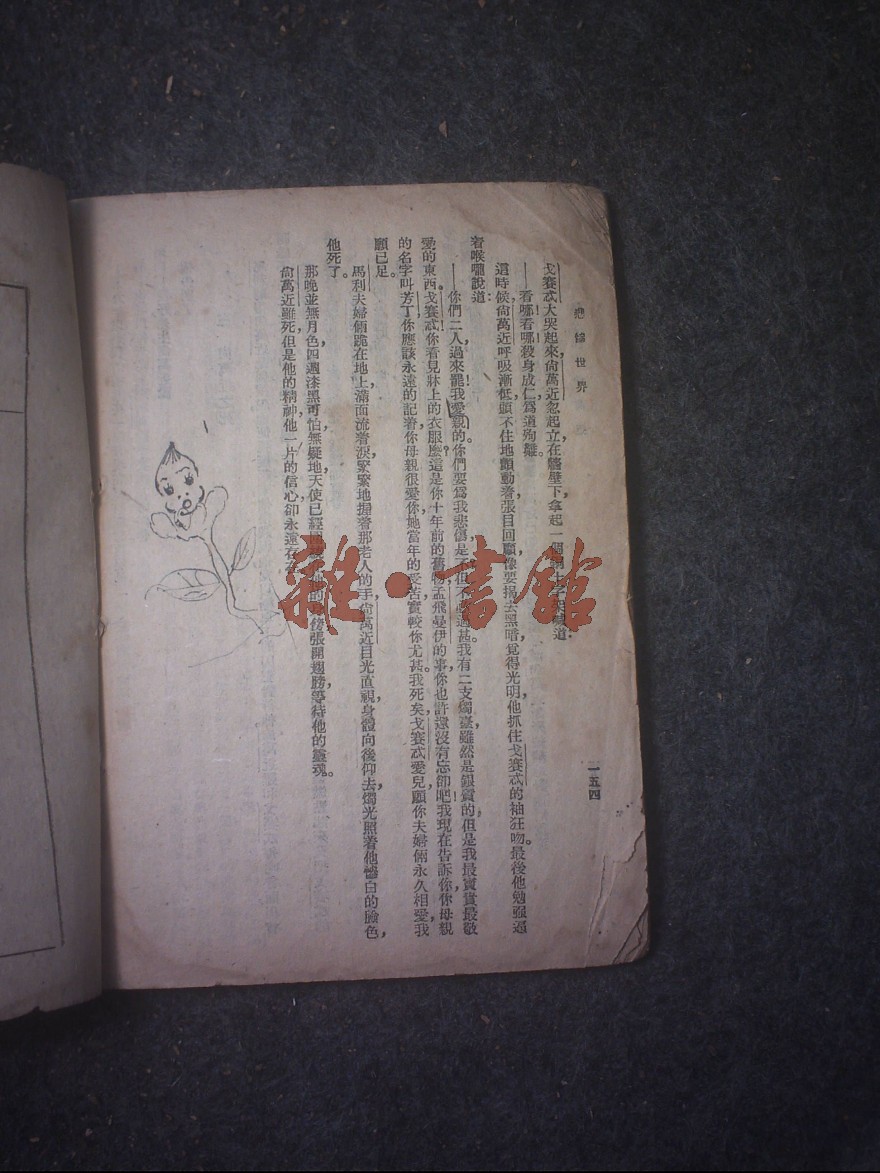 悲慘世界
一五四
戈賽忒大哭起來，尙萬近忽起立在牆壁下，拿起一個銅十字架喊道：
——看哪！看哪！殺身成仁，爲道殉難。
這時候尙萬近呼吸漸低，頭不住地顫動着，張目回顧，像要揭去黑暗覓得光明，他抓住戈賽忒的袖狂吻。最後他勉强逼
着喉嚨說道：
——你們二人過來罷！我愛親的。你們要爲我悲傷是不但不必過甚。我有二支燭臺，雖然是銀質的，但是我最寶貴最敬
愛的東西。戈賽忒！你看見牀上的衣服麽？這是你十年前的舊物，孟飛曼伊的事，你也許還沒有忘卻吧！我現在告訴你，你母親
的名字叫芳丁，你應該永遠的記着，你母親很愛你，她當年的受苦實較你尤甚。我死矣，戈賽忒愛兒，願你夫婦倆永久相愛，我
願已足。
馬利夫婦傾跪在地上，滿面流着淚，緊緊地握着那老人的手，尙萬近目光直視，身體向後仰去，燭光照着他慘白的臉色，
他死了。
那晚並無月色，四週漆黑可怕，無疑地天使已經 他的身傍，張開翅膀，等待他的靈魂。
尙萬近雖死，但是他的精神，他一片的信心，卻永遠存在
雜·書館